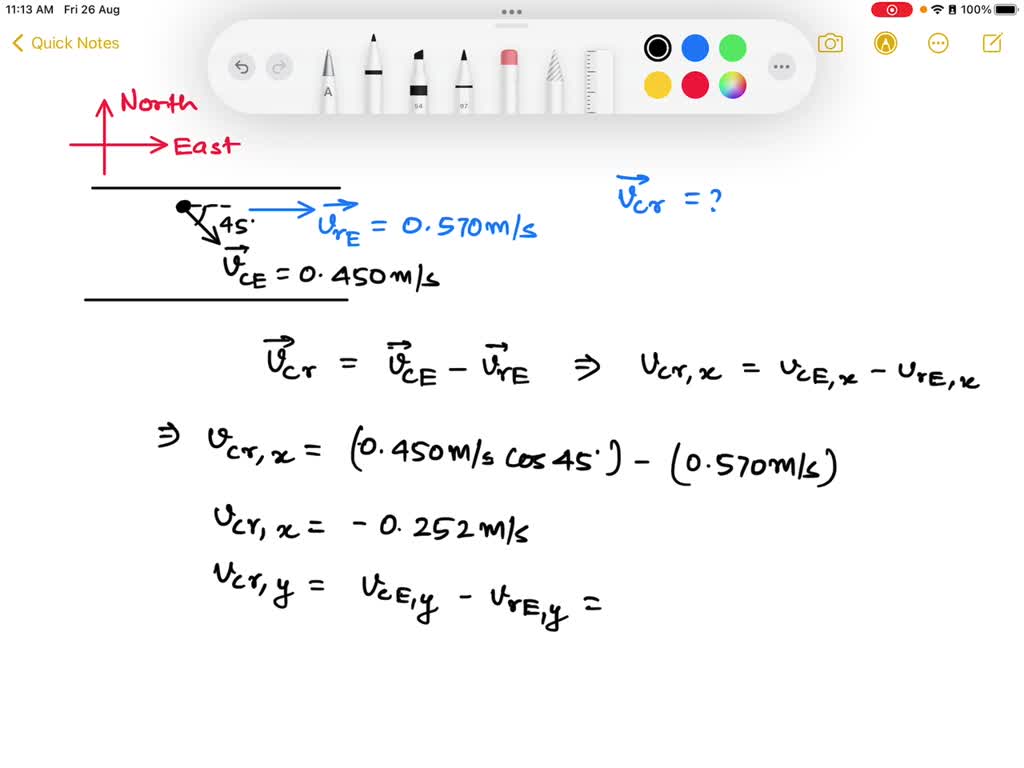 11:13 AM Fri 26 Aug
100%
Quick Notes
A
54
97
North
East
45°
v⃗rE = 0.570 m/s
v⃗cr = ?
v⃗CE = 0.450 m/s
v⃗cr = v⃗CE - v⃗rE ⇒ vcr,x = vCE,x - vrE,x
⇒ vcr,x = (0.450 m/s cos 45°) - (0.570 m/s)
vcr,x = - 0.252 m/s
vcr,y = vCE,y - vrE,y =